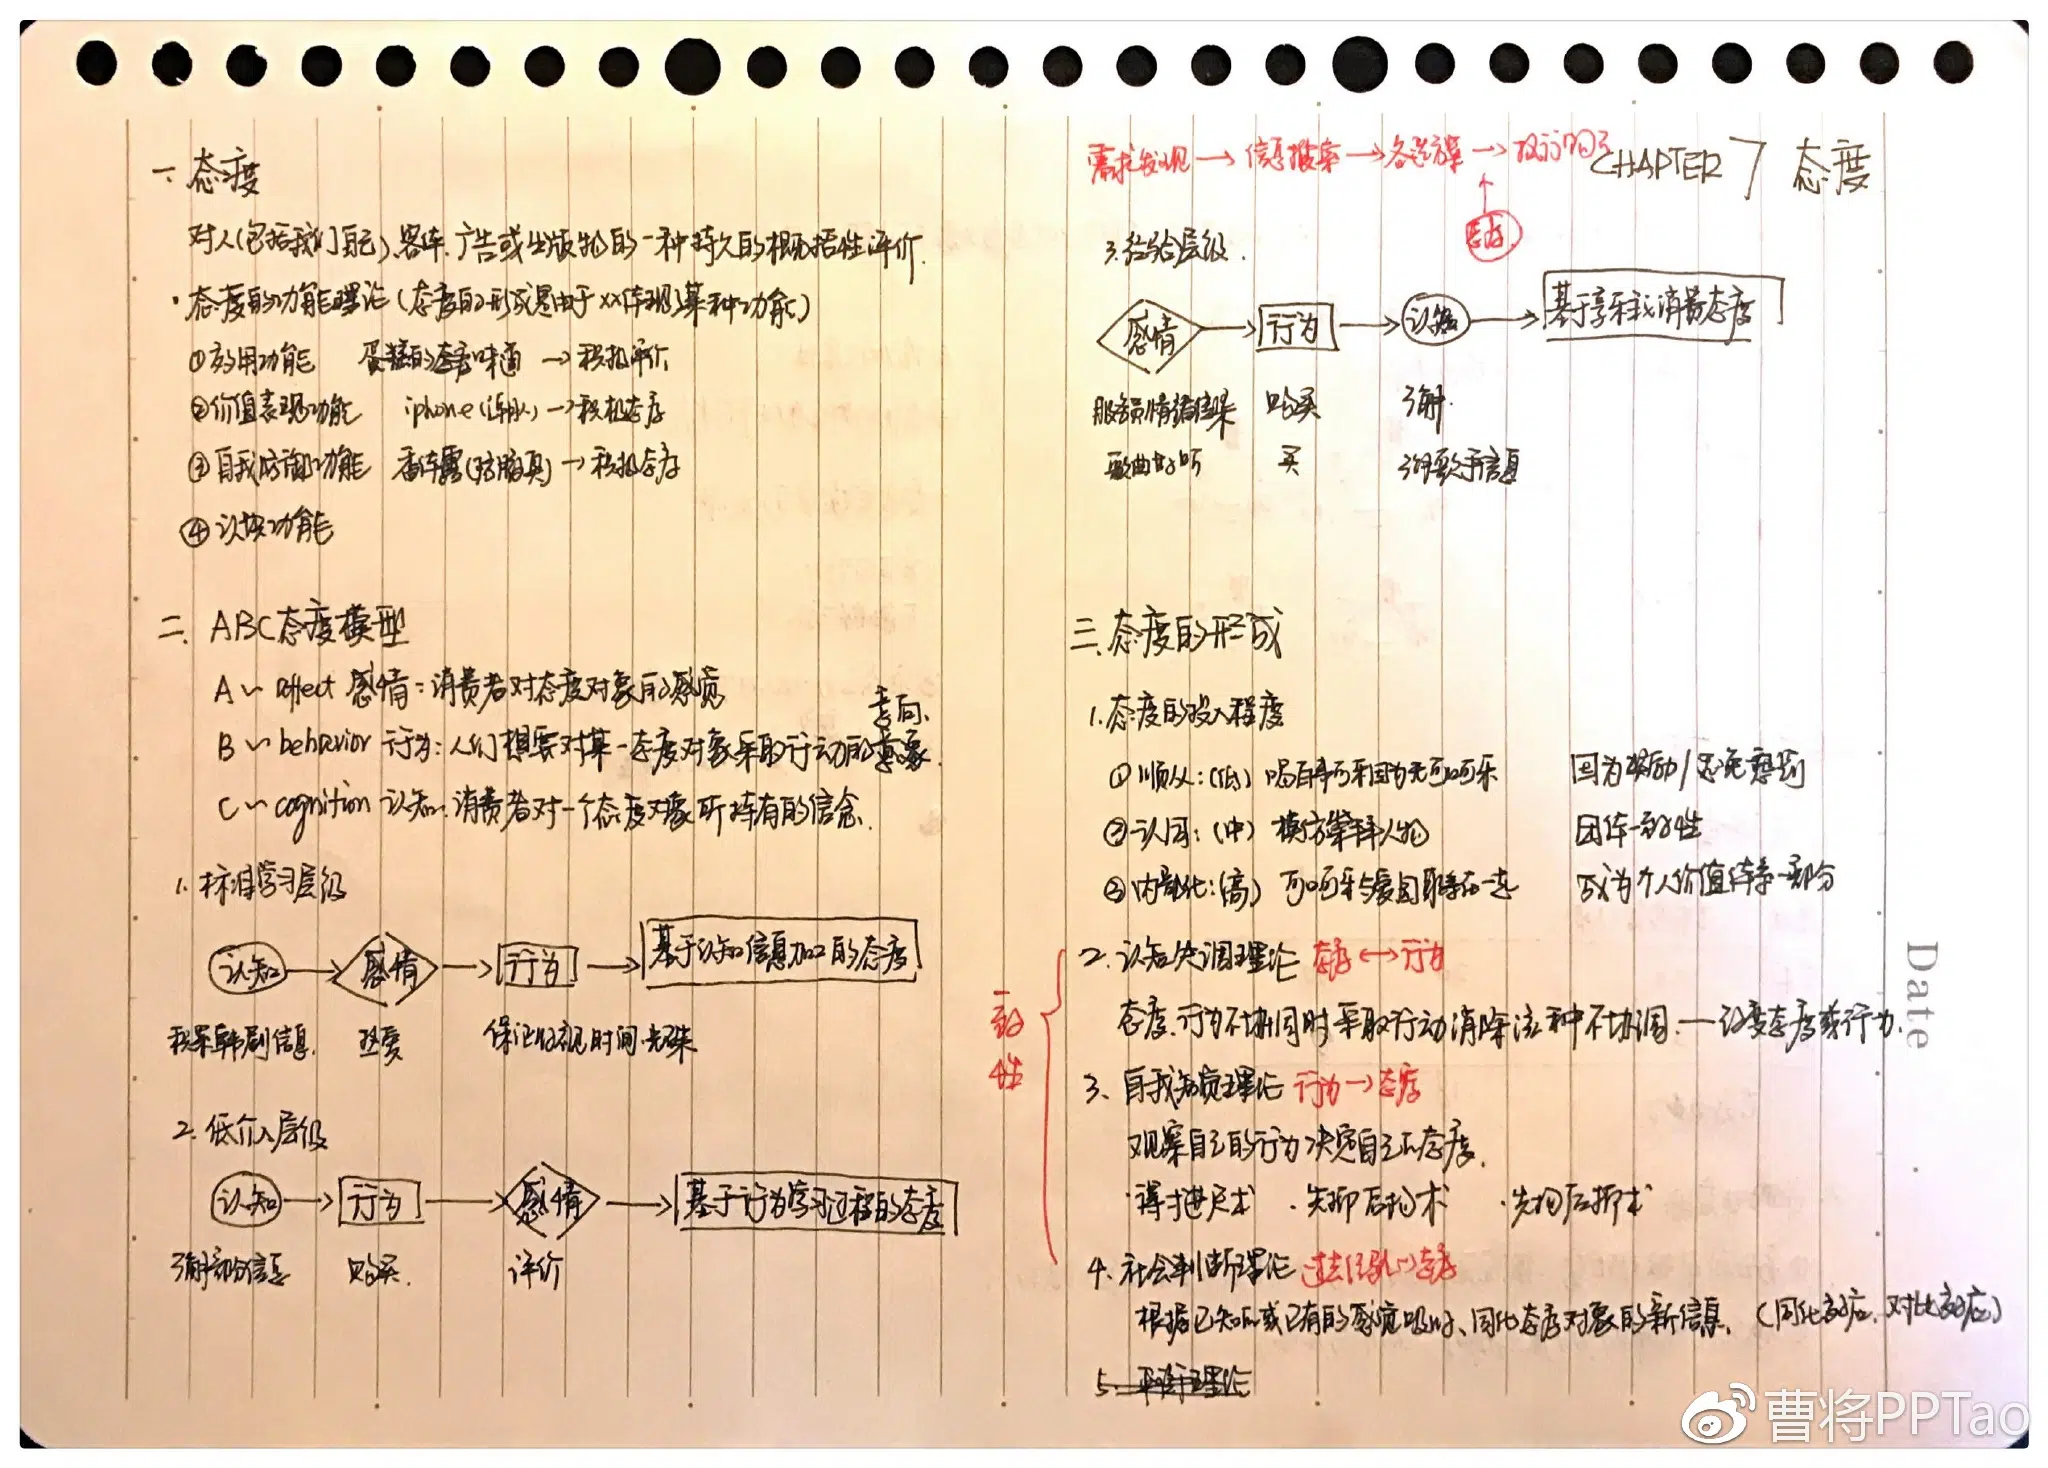 CHAPTER 7 态度
需求发现 → 信息搜索 → 备选方案 →
态度
一、态度
对人(包括我们自己)、客体、广告或出版物的一种持久的概括性评价.
·态度的功能理论(态度的形成是由于xx体现某种功能)
①效用功能 味道 → 积极评价
②价值表现功能 iphone → 积极态度
③自我防御功能 香体露 → 积极态度
④认知功能
二、ABC态度模型
A ~ affect 感情:消费者对态度对象的感觉
意向.
B ~ behavior 行为:人们想要对某一态度对象采取行动的意象.
C ~ cognition 认知:消费者对一个态度对象所持有的信念.
1. 标准学习层级
认知 → 感情 → 行为 → 基于认知信息加工的态度
积累韩剧信息. 热爱 保证收视时间
2. 低介入层级
认知 → 行为 → 感情 → 基于行为学习过程的态度
了解部分信息 购买. 评价
3. 经验层级.
感情 → 行为 → 认知 → 基于享乐主义消费态度
服务员情绪 购买 了解.
歌曲好听 买 了解歌手信息
三、态度的形成
1. 态度的投入程度
①顺从:(低) 喝百事可乐因为无可口可乐 因为奖励/避免惩罚
②认同:(中) 模仿崇拜人物 团体一致性
③内部化:(高) 可口可乐与爱国联系在一起 成为个人价值体系一部分
一致性
2. 认知失调理论 态度 ↔ 行为
态度、行为不协调时采取行动消除这种不协调.—改变态度或行为.
3. 自我知觉理论 行为 → 态度
观察自己的行为决定自己的态度.
·得寸进尺术 ·先抑后扬术 ·先扬后抑术
4. 社会判断理论 过去经验 态度
根据已知的或已有的感觉吸收、同化态度对象的新信息.(同化效应、对比效应)
5. 平衡理论
Date
曹将PPTao